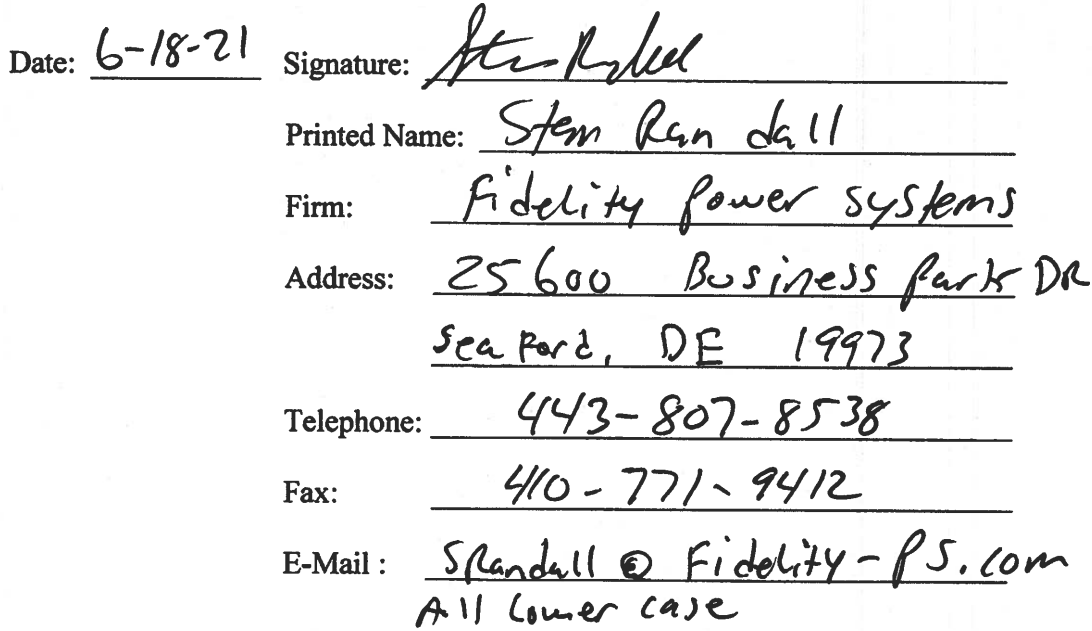 Date: 6-18-21 Signature:
Printed Name: Stem Randall
Firm: Fidelity Power Systems
Address: 25600 Business Park DR
Seaford, DE 19973
Telephone: 443-807-8538
Fax: 410-771-9412
E-Mail : SRandall @ Fidelity-PS.com
All Lower case